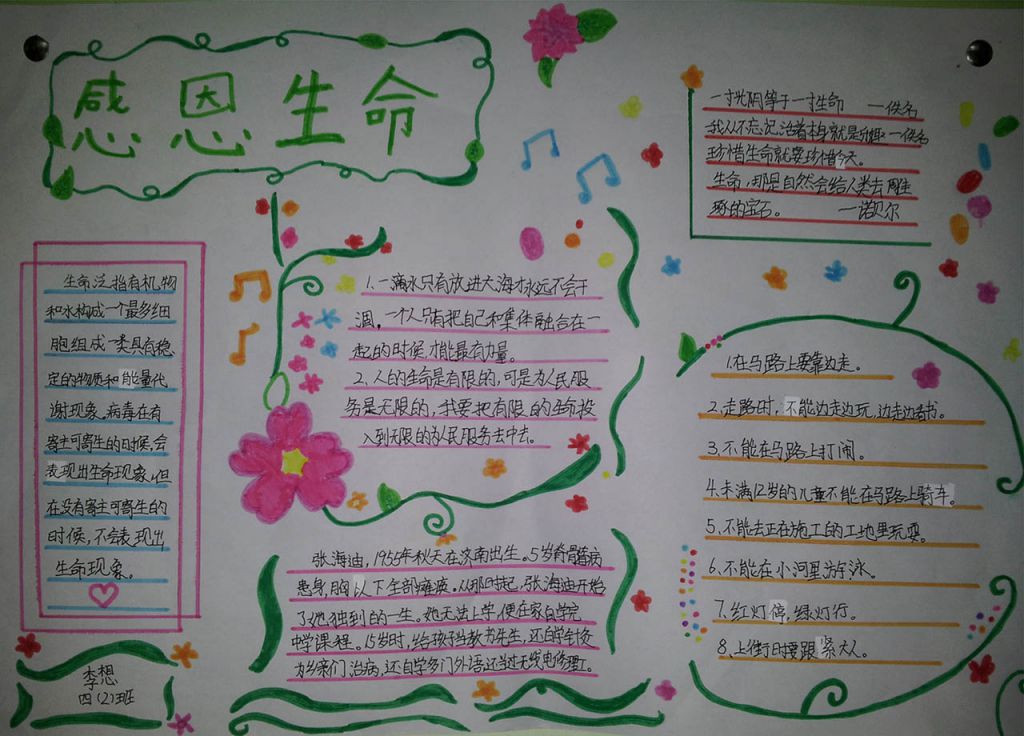 感恩生命
一寸光阴等于一寸生命 —佚名
我从不忘记活着本身就是乐趣—佚名
珍惜生命就要珍惜今天。
生命,那是自然会给人类去雕
琢的宝石。 —诺贝尔
生命泛指有机物
和水构成一个最多细
胞组成一类具有稳
定的物质和能量代
谢现象,病毒在有
寄主可寄生的时候,会
表现出生命现象,但
在没有寄主可寄生的
时候,不会表现出
生命现象。
1.一滴水只有放进大海才永远不会干
涸,一个人只有把自己和集体融合在一
起的时候才能最有力量。
2、人的生命是有限的,可是为人民服
务是无限的,我要把有限的生命投
入到无限的为民服务去中去。
张海迪,1955年秋天在济南出生。5岁脊髓病
患身,胸以下全部瘫痪。从那时起,张海迪开始
了她独到的一生。她无法上学,便在家自学完
中学课程。15岁时,给孩子当教书先生,还自学针灸
为乡亲们治病,还自学多门外语还当过无线电修理工。
1.在马路上要靠边走。
2.走路时,不能边走边玩,边走边看书。
3.不能在马路上打闹。
4.未满12岁的儿童不能在马路上骑车。
5.不能去正在施工的工地里玩耍。
6.不能在小河里游泳。
7.红灯停,绿灯行。
8.上街时要跟紧大人。
李想
四(2)班